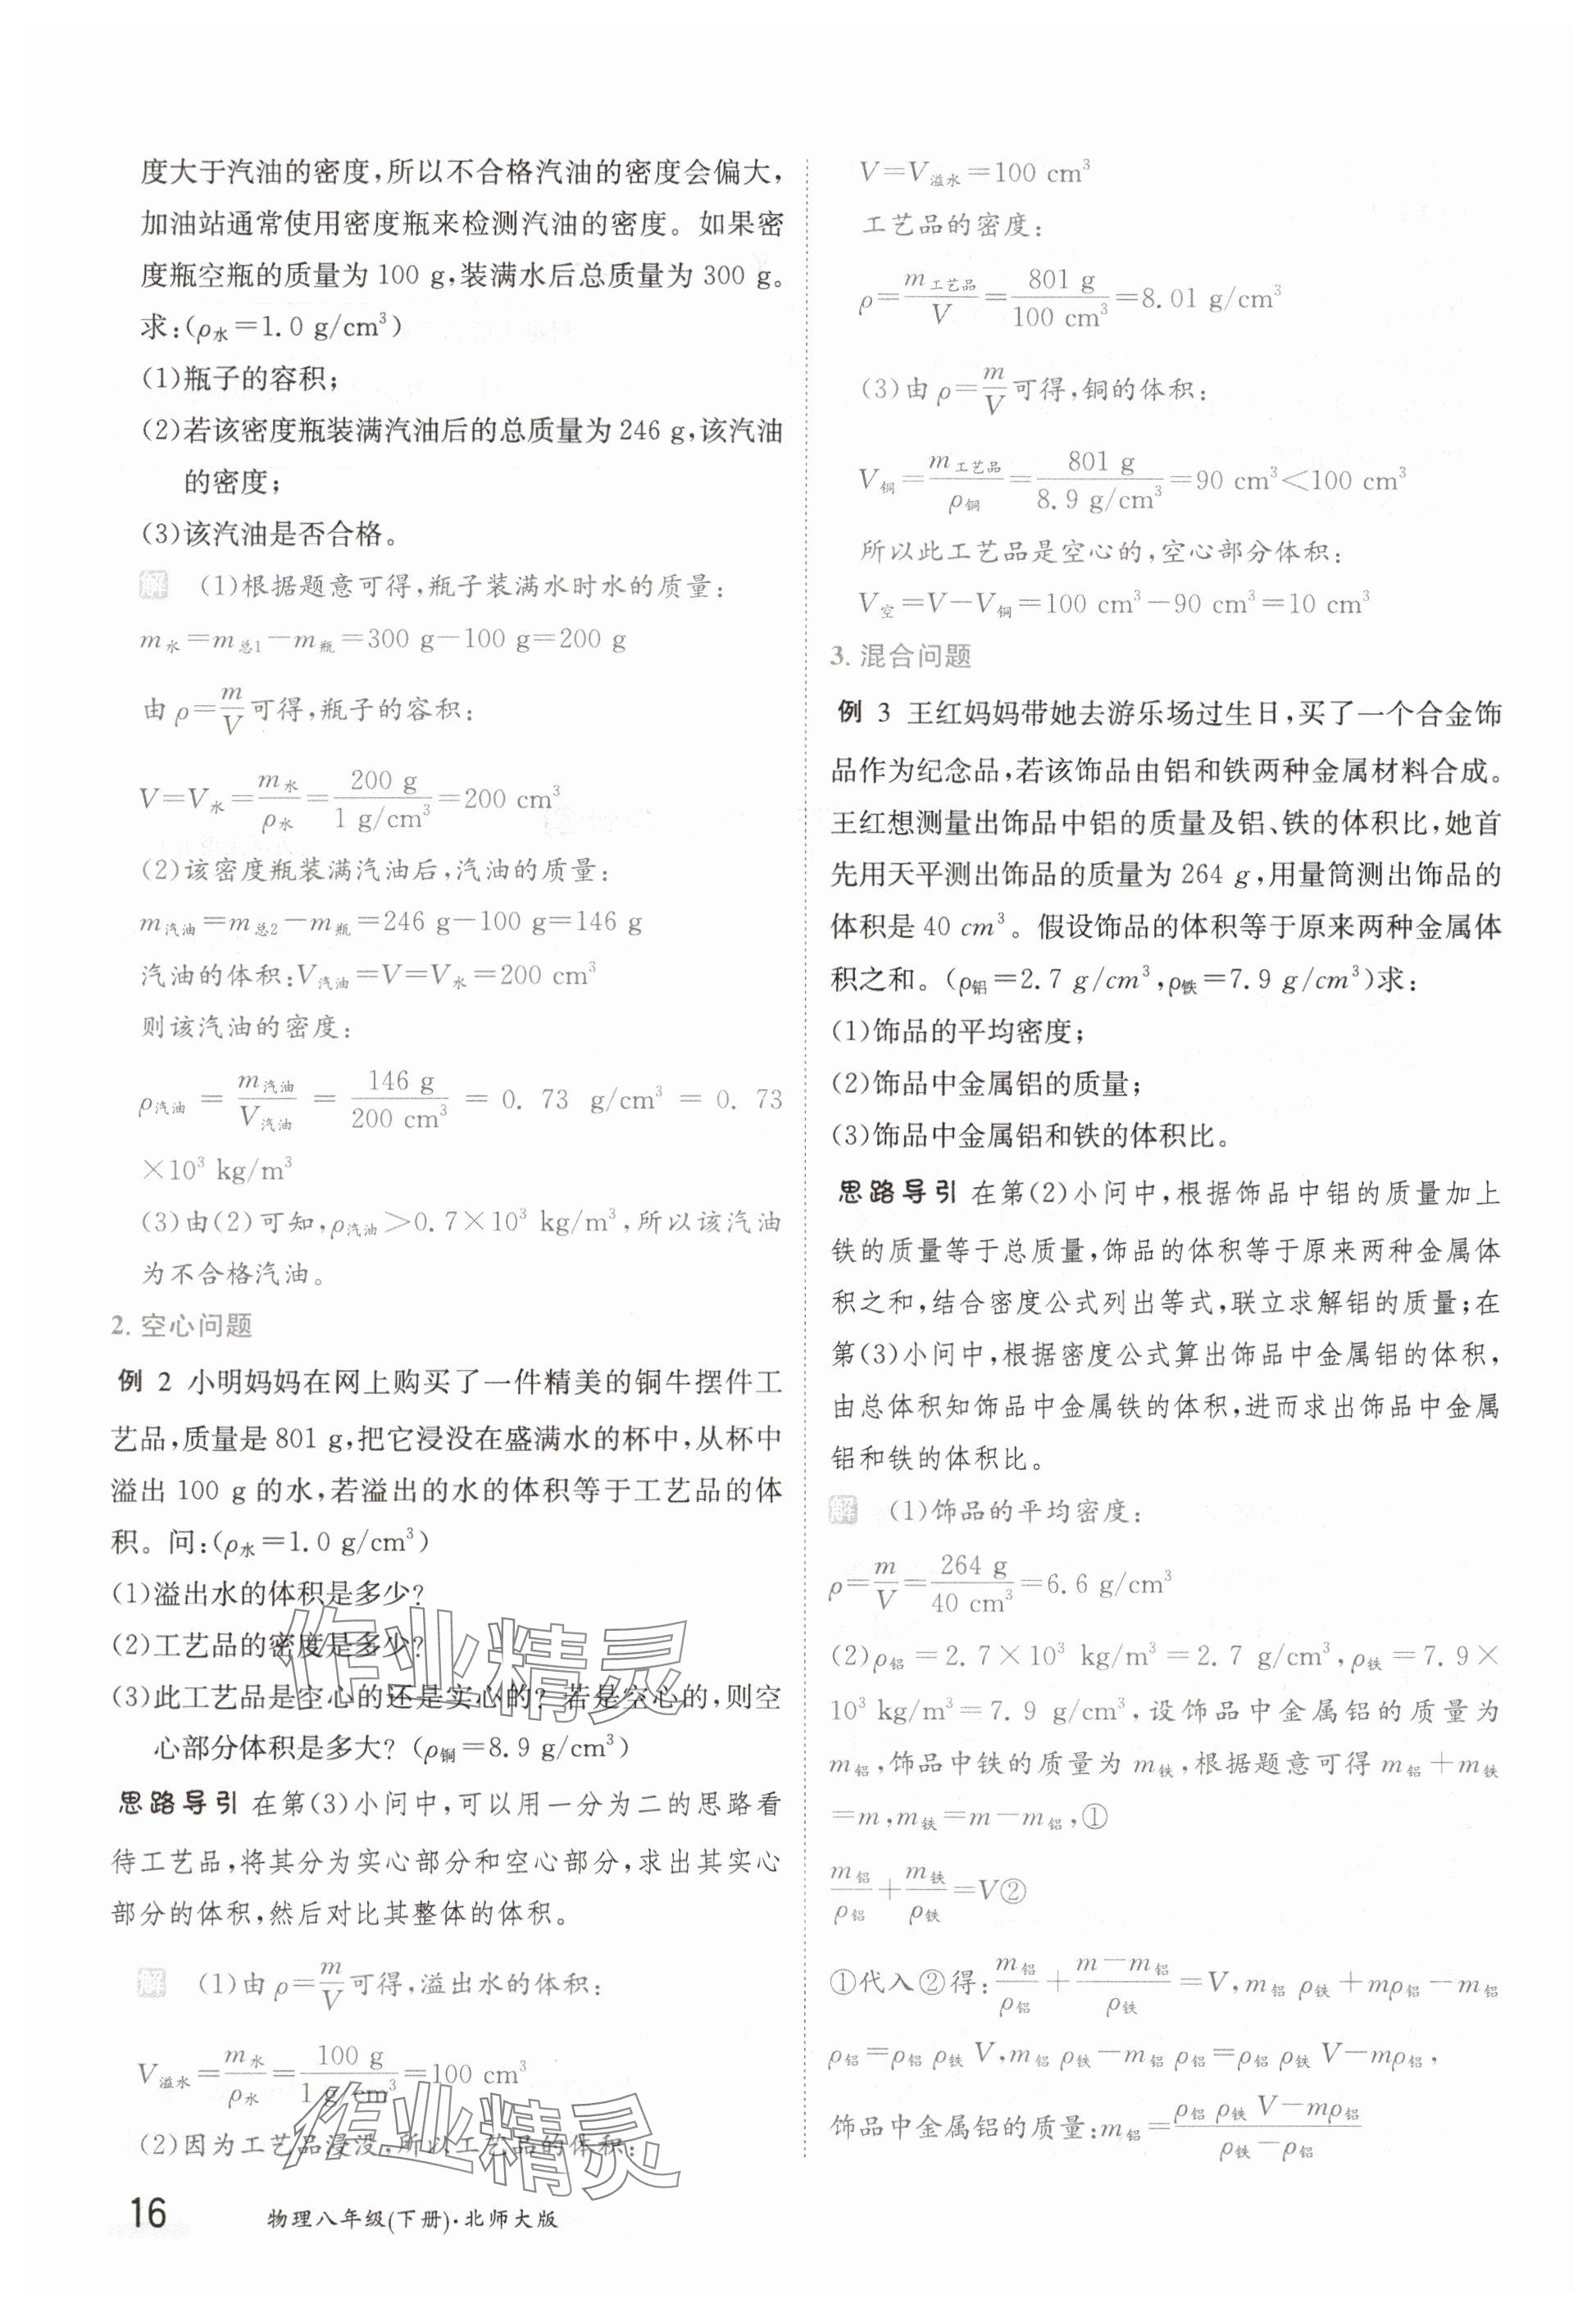 度大于汽油的密度,所以不合格汽油的密度会偏大,
加油站通常使用密度瓶来检测汽油的密度。如果密
度瓶空瓶的质量为 100 g,装满水后总质量为 300 g。
求:(ρ水=1.0 g/cm³)
(1)瓶子的容积;
(2)若该密度瓶装满汽油后的总质量为 246 g,该汽油
的密度;
(3)该汽油是否合格。
解 (1)根据题意可得,瓶子装满水时水的质量:
m水=m总1−m瓶=300 g−100 g=200 g
由 ρ=m/V可得,瓶子的容积:
V=V水=m水/ρ水=200 g/1 g/cm³=200 cm³
(2)该密度瓶装满汽油后,汽油的质量:
m汽油=m总2−m瓶=246 g−100 g=146 g
汽油的体积:V汽油=V=V水=200 cm³
则该汽油的密度:
ρ汽油 = m汽油/V汽油 = 146 g/200 cm³ = 0.73 g/cm³ = 0.73
×10³ kg/m³
(3)由(2)可知,ρ汽油>0.7×10³ kg/m³,所以该汽油
为不合格汽油。
2. 空心问题
例 2 小明妈妈在网上购买了一件精美的铜牛摆件工
艺品,质量是 801 g,把它浸没在盛满水的杯中,从杯中
溢出 100 g 的水,若溢出的水的体积等于工艺品的体
积。问:(ρ水=1.0 g/cm³)
(1)溢出水的体积是多少?
(2)工艺品的密度是多少?
(3)此工艺品是空心的还是实心的?若是空心的,则空
心部分体积是多大?(ρ铜=8.9 g/cm³)
思路导引 在第(3)小问中,可以用一分为二的思路看
待工艺品,将其分为实心部分和空心部分,求出其实心
部分的体积,然后对比其整体的体积。
解 (1)由 ρ=m/V可得,溢出水的体积:
V溢水=m水/ρ水=100 g/1 g/cm³=100 cm³
(2)因为工艺品浸没,所以工艺品的体积:
作业精灵
作业精灵
16 物理八年级(下册)·北师大版
V=V溢水=100 cm³
工艺品的密度:
ρ=m工艺品/V=801 g/100 cm³=8.01 g/cm³
(3)由 ρ=m/V可得,铜的体积:
V铜=m工艺品/ρ铜=801 g/8.9 g/cm³=90 cm³<100 cm³
所以此工艺品是空心的,空心部分体积:
V空=V−V铜=100 cm³−90 cm³=10 cm³
3. 混合问题
例 3 王红妈妈带她去游乐场过生日,买了一个合金饰
品作为纪念品,若该饰品由铝和铁两种金属材料合成。
王红想测量出饰品中铝的质量及铝、铁的体积比,她首
先用天平测出饰品的质量为 264 g,用量筒测出饰品的
体积是 40 cm³。假设饰品的体积等于原来两种金属体
积之和。(ρ铝=2.7 g/cm³,ρ铁=7.9 g/cm³)求:
(1)饰品的平均密度;
(2)饰品中金属铝的质量;
(3)饰品中金属铝和铁的体积比。
思路导引 在第(2)小问中,根据饰品中铝的质量加上
铁的质量等于总质量,饰品的体积等于原来两种金属体
积之和,结合密度公式列出等式,联立求解铝的质量;在
第(3)小问中,根据密度公式算出饰品中金属铝的体积,
由总体积知饰品中金属铁的体积,进而求出饰品中金属
铝和铁的体积比。
解 (1)饰品的平均密度:
ρ=m/V=264 g/40 cm³=6.6 g/cm³
(2)ρ铝=2.7×10³ kg/m³=2.7 g/cm³,ρ铁=7.9×
10³ kg/m³=7.9 g/cm³,设饰品中金属铝的质量为
m铝,饰品中铁的质量为 m铁,根据题意可得 m铝+m铁
=m,m铁=m−m铝,①
m铝/ρ铝+m铁/ρ铁=V②
①代入②得:m铝/ρ铝+m−m铝/ρ铁=V,m铝 ρ铁+mρ铝−m铝
ρ铝=ρ铝 ρ铁 V,m铝 ρ铁−m铝 ρ铝=ρ铝 ρ铁 V−mρ铝,
饰品中金属铝的质量:m铝=ρ铝 ρ铁 V−mρ铝/ρ铁−ρ铝